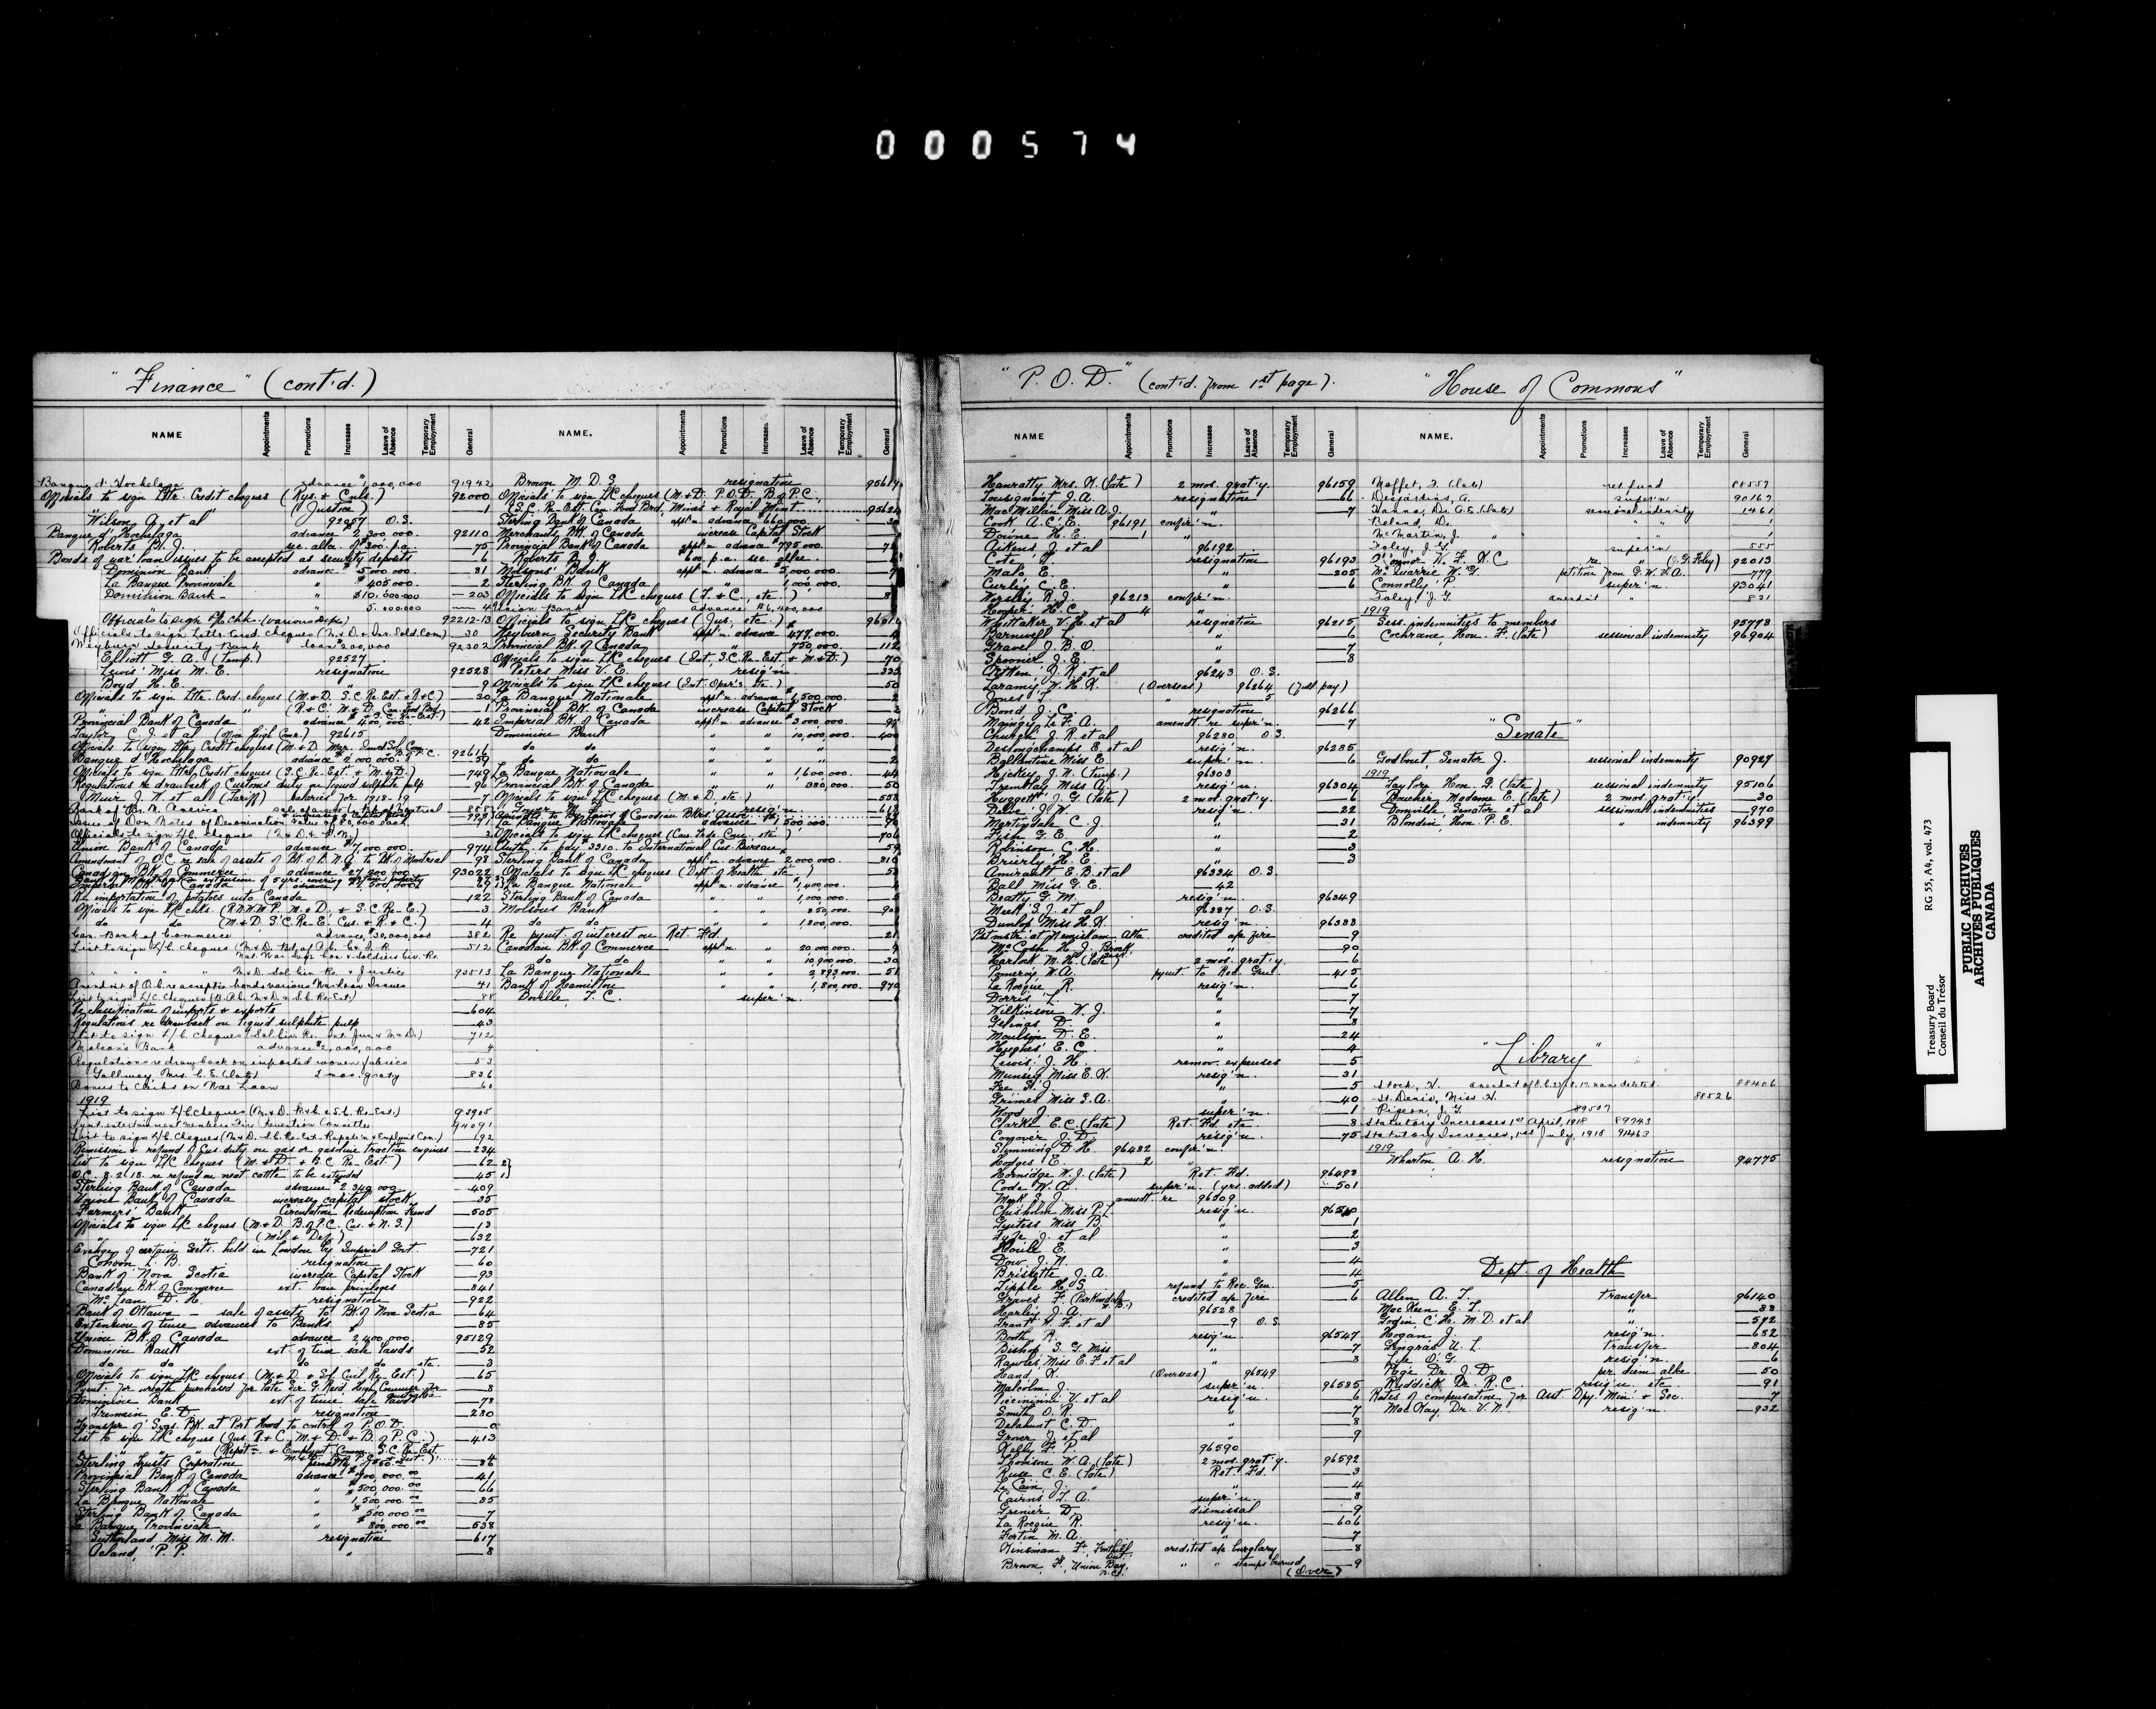 000574
"Finance" (cont'd.)
NAME Appointments Promotions Increases Leave of Absence Temporary Employment General
Banque d'Hochelaga advance $1,000,000 91942
Officials to sign Ltr. Credit cheques (Rys. & Cnls.) 92000
" " (Justice) —1
Wilson, J. et al 92057 O.S.
Banque d'Hochelaga advance $2,300,000. 92110
Roberts B. J. sec. allce $300. p.a. —75
Bonds of war loan issues to be accepted as security deposits —6
Dominion Bank advance $5,000,000. —81
La Banque Provinciale " $405,000. —2
Dominion Bank " $10,600,000 —203
" " 5,000,000 —4
Officials to sign L/C chks. (various Depts) 92212-13
Officials to sign Lettr. Cred. cheques (M & D & Inv. Sold. Com) —30
Weyburn Security Bank loan $200,000 92302
Elliott G. A. (Temp.) 92527
Lewis Miss M. E. resignation 92528
Boyd H. E. " 9
Officials to sign Lttr. Cred. cheques (M. & D. S.C. Re-Est. & R & C) —30
" " " (R. & C. M. & D. Can. Food Bd. & S.C. Re-Est.) —1
Provincial Bank of Canada advance $400,000. —42
Taylor C. J. et al (Off. High Com.) 92615
Banque d'Hochelaga advance $2,000,000. —59
Officials to sign Lttr. Credit cheques (S.C. Re-Est. & M. & D.) —749
Regulations re drawback of Customs duty on liquid sulphite pulp —96
Muir J. N. et al (Tariff) salaries for 1918-19 —7
Issue of Dom Notes of Denomination value of $50,000 each —91
Officials to sign L/C. cheques (M & D. & P.M.) —2
Union Bank of Canada advance $7,000,000. —974
Amendment of O.C. re sale of assets of Bk. of B.N.A. to Bk. of Montreal —98
Canadian Bk. of Commerce advance $27,200,000 93022
Imperial Bk. of Canada advance $7,500,000 —69
Re importation of potatoes into Canada —122
Officials to sign L/C chks. (R.N.W.M.P. M. & D. & S.C. Re-E.) —3
do do (M. & D. S.C. Re-E. Cus. & R. & C.) —4
Can. Bank of Commerce advance $30,000,000 —382
List to sign L/C. cheques —512
" " " " M & D. Sol. Civ. Re. & Justice 93513
Amendt of O.C. re accepting bonds various War Loan Issues —41
List to sign L/C. cheques —88
Re classification of imports & exports —604
Regulations re drawback on liquid sulphite pulp —43
List to sign L/C. cheques —712
Molson's Bank advance $2,000,000 —4
Regulations re drawback on imported woven fabrics —53
Gallwey Mrs. C. E. (late) 2 mos. graty —836
Bonus to Clerks on War Loan —60
1919
List to sign L/C cheques (M. & D. R & C. & S.C. Re-Est.) 93905
Pymt. entertainment members Fire Prevention Committee 94091
List to sign L/C. cheques (M & D. S.C. Re-Est. Repat'n & Employm't Com.) —192
Remission & refund of Cus. duty on gas or gasoline traction engines —234
List to sign L/C cheques (M. & D. & S.C. Re-Est.) —62
O.C. 8.2.18. re refund on neat cattle to be extended —45
Sterling Bank of Canada advance $2,340,000 —409
Union Bank of Canada increase capital stock —35
Farmers' Bank Circulation Redemption Fund —505
Officials to sign L/C cheques (M. & D. B. of P.C. Cus. & N.S.) —13
" " (Mil. & Def.) —632
Exchge of certain Sec'ts. held in London by Imperial Govt. —721
Conson L. B. resignation —60
Bank of Nova Scotia increase Capital Stock —93
Canadian Bk. of Commerce ext. loan privileges —841
McLean D. H. resignation —922
Bank of Ottawa – sale of assets to Bk. of Nova Scotia —64
Extension of time advances to Banks —85
Union Bk. of Canada advance $2,400,000. 95129
Dominion Bank ext. of time sale lands —52
do do do do etc. —3
Officials to sign L/C cheques (M. & D. & Sol. Civil Re-Est.) —65
Pymt. for wreath purchased for late Sir G. Reid, High Commr. for Australia —8
Dominion Bank ext. of time sale lands —78
Tremain E. D. resignation —280
Transfer of Svgs. Bk. at Port Hood to control of P.O.D.
List to sign L/C cheques (Jus. R. & C. M. & D. & B. of P.C.) —413
Sterling Trusts Corporation —34
Provincial Bank of Canada advance $900,000.00 —41
Sterling Bank of Canada " $500,000.00 —66
La Banque Nationale " 1,500,000.00 —85
Sterling Bank of Canada " $500,000.00 —7
La Banque Provinciale " $800,000.00 —538
Sutherland Miss M. M. resignation —617
Acland, P. P. " —8
NAME. Appointments Promotions Increases Leave of Absence Temporary Employment General
Brown M. D. S. resignation
Officials to sign L/C cheques (M. & D. P.O.D. B. of P.C.,
(S.C. Re-Est. Can. Food Brd, Mines & Royal Mint
Sterling Bank of Canada appl'n. advance $660,000
Merchants Bk. of Canada increase Capital Stock
Provincial Bank of Canada appl'n. advance $795,000.
Roberts B. J. $600. p.a. sec. allce.
Molsons' Bank appl'n. advance $5,000,000.
Sterling Bk. of Canada " 1,000,000.
Officials to sign L/C cheques (T. & C., etc.)
Union Bank advance $6,400,000
Officials to sign L/C cheques (Jus. etc.)
Weyburn Security Bank appl'n. advance $477,000.
Provincial Bk. of Canada " 750,000. —112
Officials to sign L/C cheques (Int., S.C. Re-Est. & M. & D.) —70
Peters Miss V. E. resig'n.
Officials to sign L/C cheques (Int. Oper's, etc.) —50
La Banque Nationale appl'n. advance $1,500,000. —2
Provincial Bk. of Canada increase Capital Stock —3
Imperial Bk. of Canada appl'n. advance $3,000,000.
Dominion Bank " " 10,000,000. —400
do do " " " —1
do do " " " —2
La Banque Nationale " " 1,600,000. —44
Provincial Bk. of Canada " " 380,000. —50
Officials to sign L/C cheques (M. & D., etc.) —558
La Banque Nationale advance $1,500,000.
Officials to sign L/C cheques (Can. Trade Com., etc.) —706
Auth. to pay $3310. to International Cus. Bureau —59
Sterling Bank of Canada appl'n. advance $2,000,000.
Officials to sign L/C cheques (Dept. of Health etc.)
La Banque Nationale appl'n. advance $1,400,000.
Sterling Bank of Canada " " 1,000,000. —5
Molsons Bank " " 850,000.
do do " " 1,800,000.
Re pymt. of interest on Ret. F'd.
Canadian Bk. of Commerce appl'n. " 20,000,000. —9
do do " " 10,900,000. —30
La Banque Nationale " " 2,893,000. —51
Bank of Hamilton " " 1,800,000. —970
Boville, T. C. super'n.
"P.O.D." (cont'd. from 1st page).
NAME Appointments Promotions Increases Leave of Absence Temporary Employment General
Hanratty Mrs. H. (late) 2 mos. grat'y. 96159
Lousignant J. A. resignation —66
MacMillan Miss A. J. " —7
Cook A. C. E. 96191 confir'n.
Downe H. E. —1 "
Aikens J. et al 96192
Cote, J. resignation 96193
Mah E. " —205
Curley C. E. " —6
Worsley R. J. 96213 confir'n.
Hooper H. C. —4 "
Whittaker V. H. et al resignation 96215
Barnwell L. " —6
Gravel J. B. O. " —7
Spooner J. E. " —8
Aitken J. R. et al 96243 O.S.
Laramy W. H. K. (Overseas) 96264 (Full pay)
Jones T. " 5 "
Bond J. C. resignation 96266
Maingy Le F. A. amendt. re super'n. —7
Church J. R. et al 96280 O.S.
Deslongchamps E. et al resig'n. 96285
Ballantine Miss E. super'n. —6
Hickey J. N. (temp.) 96303
Tremblay Miss A. resig'n. 96304
Huggett J. G. (late) 2 mos. grat'y. —6
Dean J. W. resig'n. —22
Martyndale C. J. " —31
Fish G. E. " —2
Robinson C. H. " —3
Brierly H. E. " —3
Amirault E. B. et al 96334 O.S.
Ball Miss G. E. —42
Beatty G. M. resig'n. 96349
Meek S. J. et al 96387 O.S.
Dunlop Miss H. K. resig'n. 96388
Pstmstr. at Nemiskam Alta. credited a/c fire —9
McCosh H. J., Brock, Sask. " —90
Harlock M. H. (late) 2 mos. grat'y. —6
Pomeroy W. A. pymt. to Rec. Gen. —415
La Rocque R. resig'n. —6
Dorris L. " —7
Wilkinson W. J. " —7
Gelinas D. " —8
Moulson D. E. " —24
Hughes E. C. " —4
Lewis J. H. remov. expenses —5
Munsey Miss E. K. resig'n. —31
Fee H. J. " —5
Grimes Miss S. A. " —40
Wood J. super'n. —1
Clarke E. C. (late) Ret. Fd. etc. —8
Conover J. D. resig'n. —75
Slemming D. H. 96482 confir'n.
Hodges E. —2 "
Hornidge W. J. (late) Ret. Fd. 96493
Code W. A. super'n. (yrs. added) —501
Meek S. J. amendt. re 96309
Chisholm Miss P. L. resig'n. 96510
Gentess Miss B. " —1
Tufe J. et al " —2
Houle E. " —3
Dow J. N. " —4
Brissette J. A. " —4
Tipple H. S. refund to Rec. Gen. —5
Graves F. (Parkindale N.B.) credited a/c fire —6
Harley J. A. 96528
Grant H. F. et al —9 O.S.
Booth, R. resig'n. 96547
Bishop S. G. Miss " —7
Rawles Miss E. F. et al " —8
Hand, K. (Overseas) 96549
Malcolm J. super'n. 96585
Piccininni V. et al resig'n. —6
Smith O. R. " —7
Delahunt C. D. " —8
Grover J. et al " —9
Kelly F. P. 96590
Thomson W. A. (late) 2 mos. grat'y. 96592
Ruse C. E. (late) Ret. Fd. —3
Le Cain, J. " " —4
Cairns T. A. super'n. —8
Grenier D. dismissal —9
La Rocque R. resig'n. —606
Fortin M. A. " —7
Kinsman F., Fonthill Ont. credited a/c burglary —8
Brown, F., Union Bay, B.C. " " stamps burned —9
(Over)
"House of Commons"
NAME. Appointments Promotions Increases Leave of Absence Temporary Employment General
Moffet, F. (late) ret. fund 88557
Desjardins, A. super'n 90167
Hanna, Dr. A. E. (late) sessional indemnity —1461
Beland, Dr. " " —1
McMartin, J. " " " —1
Foley, J. G. super'n —555
O'Connor W. F. K.C. re " (J. G. Foley) 92013
McQuarrie W. G. petition from G.W.V.A. —779
Connolly P. super'n. 93041
Foley, J. G. amendt " —831
1919
Sess. indemnities to members 95778
Cochrane, Hon. F. (late) sessional indemnity 96904
"Senate"
Godbout, Senator J. sessional indemnity 90927
1919
Taylor, Hon. G. (late) sessional indemnity 95106
Boucher Madame E. (late) 2 mos. grat'y. —30
Domville Senator et al sessional indemnities —970
Blondin, Hon. P. E. " indemnity 96399
"Library"
Stock, V. 88406
St. Denis, Miss V. 88526
Pigeon, J. G. 89507
Statutory Increases 1st April, 1918 89743
Statutory Increases, 1st July, 1918 91463
1919
Wharton A. H. resignation 94775
Dept. of Health
Allen A. T. transfer 96140
MacKeen E. T. " —88
Godin, C. H. M.D. et al " —592
Hogan, J. resig'n. —632
Gingras U. L. transfer —804
Lye O. G. resig'n. —6
Pagé Dr. J. D. per diem allce. —50
Ruddick Dr. R. C. resig'n. etc. —91
Rates of compensation for Asst. Dpy. Min. & Sec. —7
MacKay, Dr. V. N. resig'n. —932
RG 55, A4, vol. 473
Treasury Board
Conseil du Trésor
PUBLIC ARCHIVES
ARCHIVES PUBLIQUES
CANADA